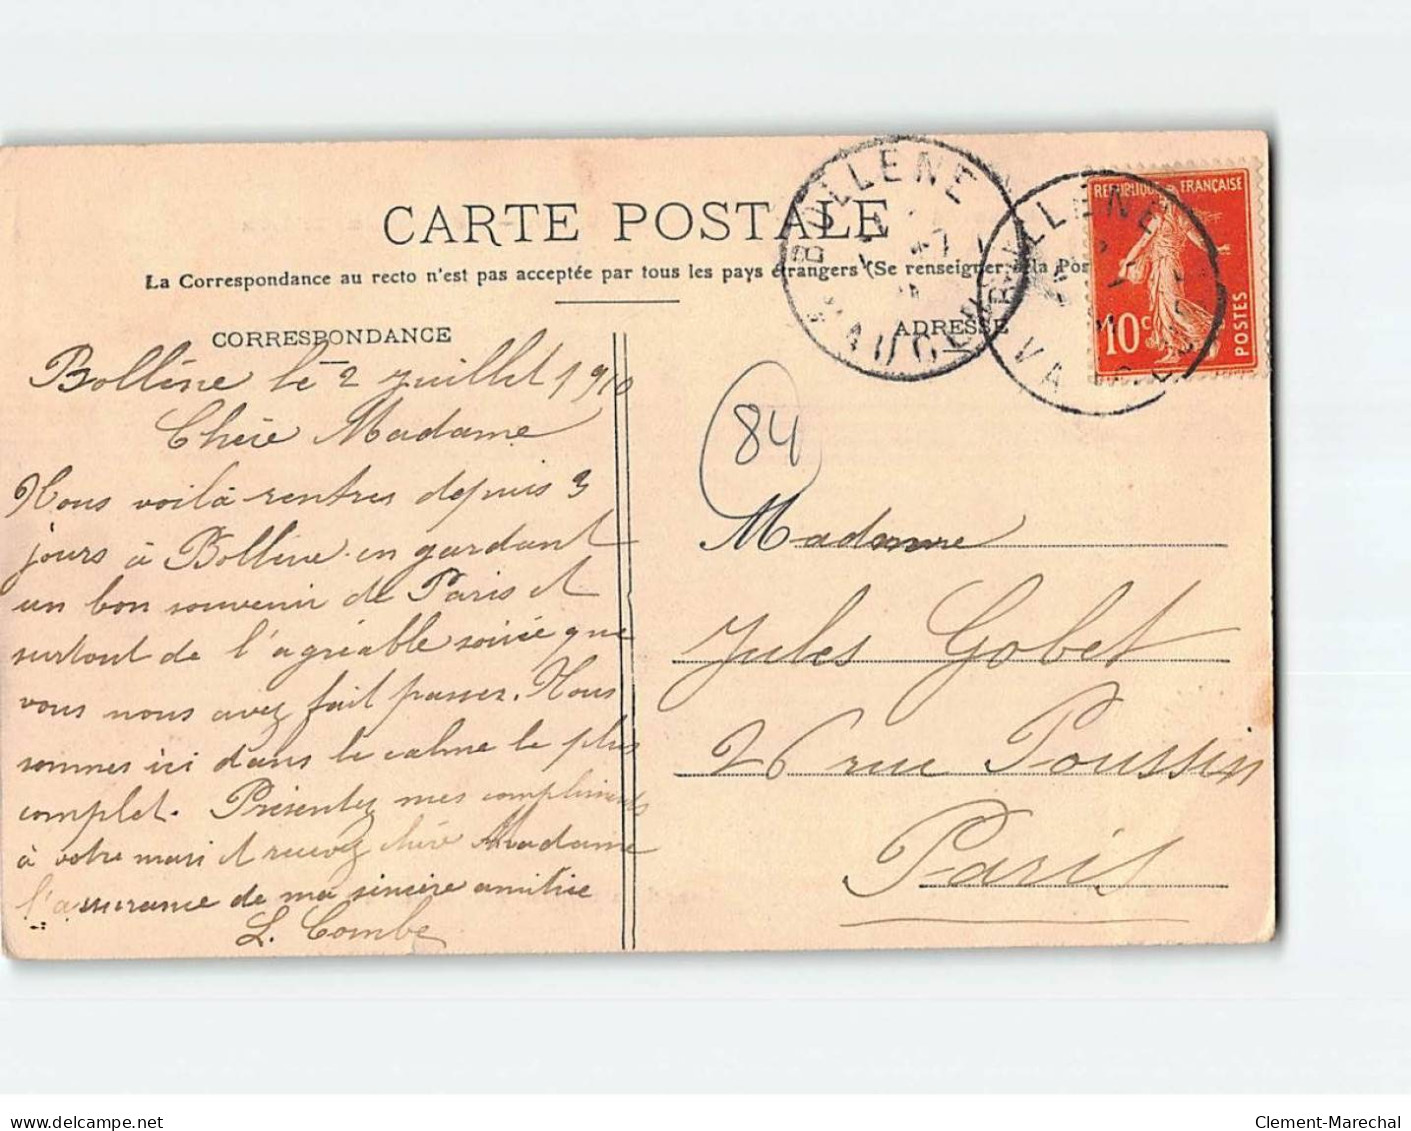 CARTE POSTALE
La Correspondance au recto n'est pas acceptée par tous les pays étrangers (Se renseigner à la Pos
CORRESPONDANCE
ADRESSE
BOLLENE
VAUCLUSE
BOLLENE
VAUCLUSE
REPUBLIQUE FRANÇAISE
10c
POSTES
84
Bollène le 2 juillet 1910
Chère Madame
Nous voilà rentrés depuis 3
jours à Bollène en gardant
un bon souvenir de Paris et
surtout de l'agréable soirée que
vous nous avez fait passer. Nous
sommes ici dans le calme le plus
complet. Présentez mes compliments
à votre mari et recevez chère Madame
l'assurance de ma sincère amitiée
L. Combe
Madame
Jules Gobet
26 rue Poussin
Paris
www.delcampe.net
Clement-Marechal